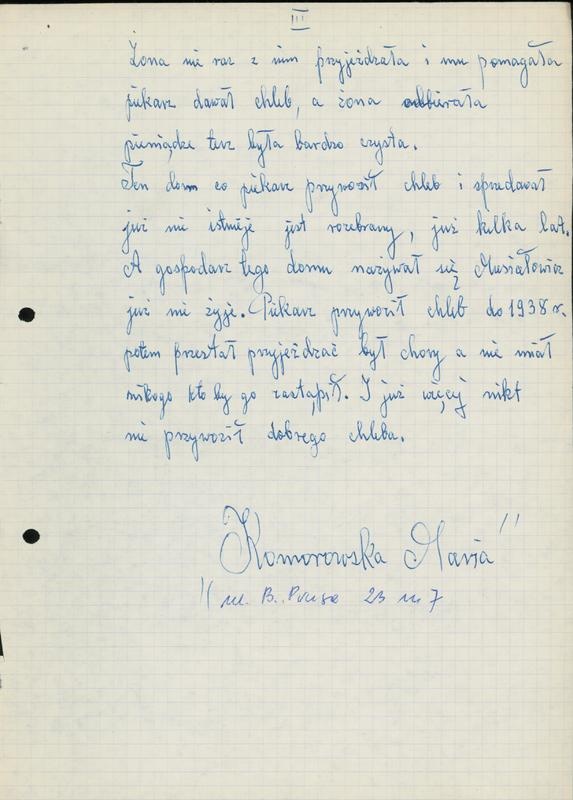 III
Żona nie raz z nim przyjeżdżała i mu pomagała
piekarz dawał chleb, a żona odbierała
pieniądze też była bardzo czysta.
Ten dom co piekarz przywoził chleb i spedawał
już nie istnieje jest rozebrany, już kilka lat.
A gospodarz tego domu nazywał się Musiałowicz
już nie żyje. Piekarz przywoził chleb do 1938 r.
potem przestał przyjeżdżać był chory a nie miał
nikogo kto by go zastąpił. I już więcej nikt
nie przywoził dobrego chleba.
Komorowska Maria"
"ul. B. Prusa 23 m 7